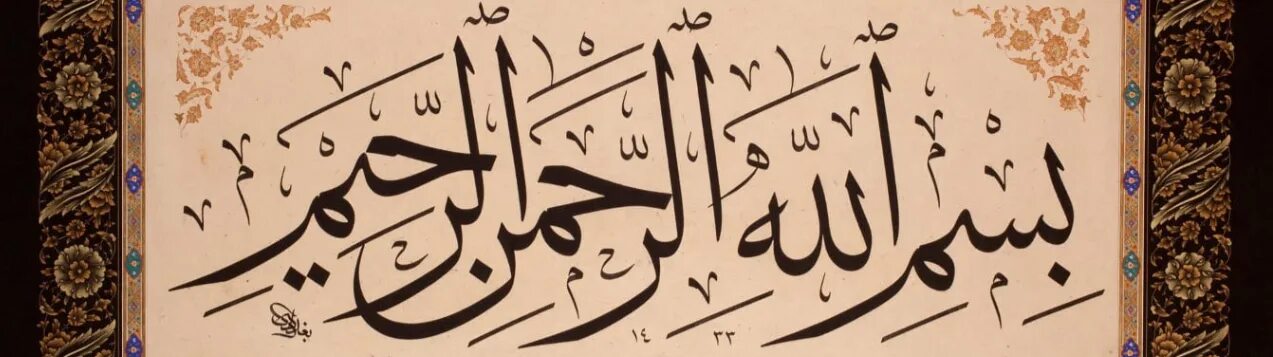 بِسْمِ ٱللَّهِ ٱلرَّحْمٰنِ ٱلرَّحِيمِ
١٤٣٣